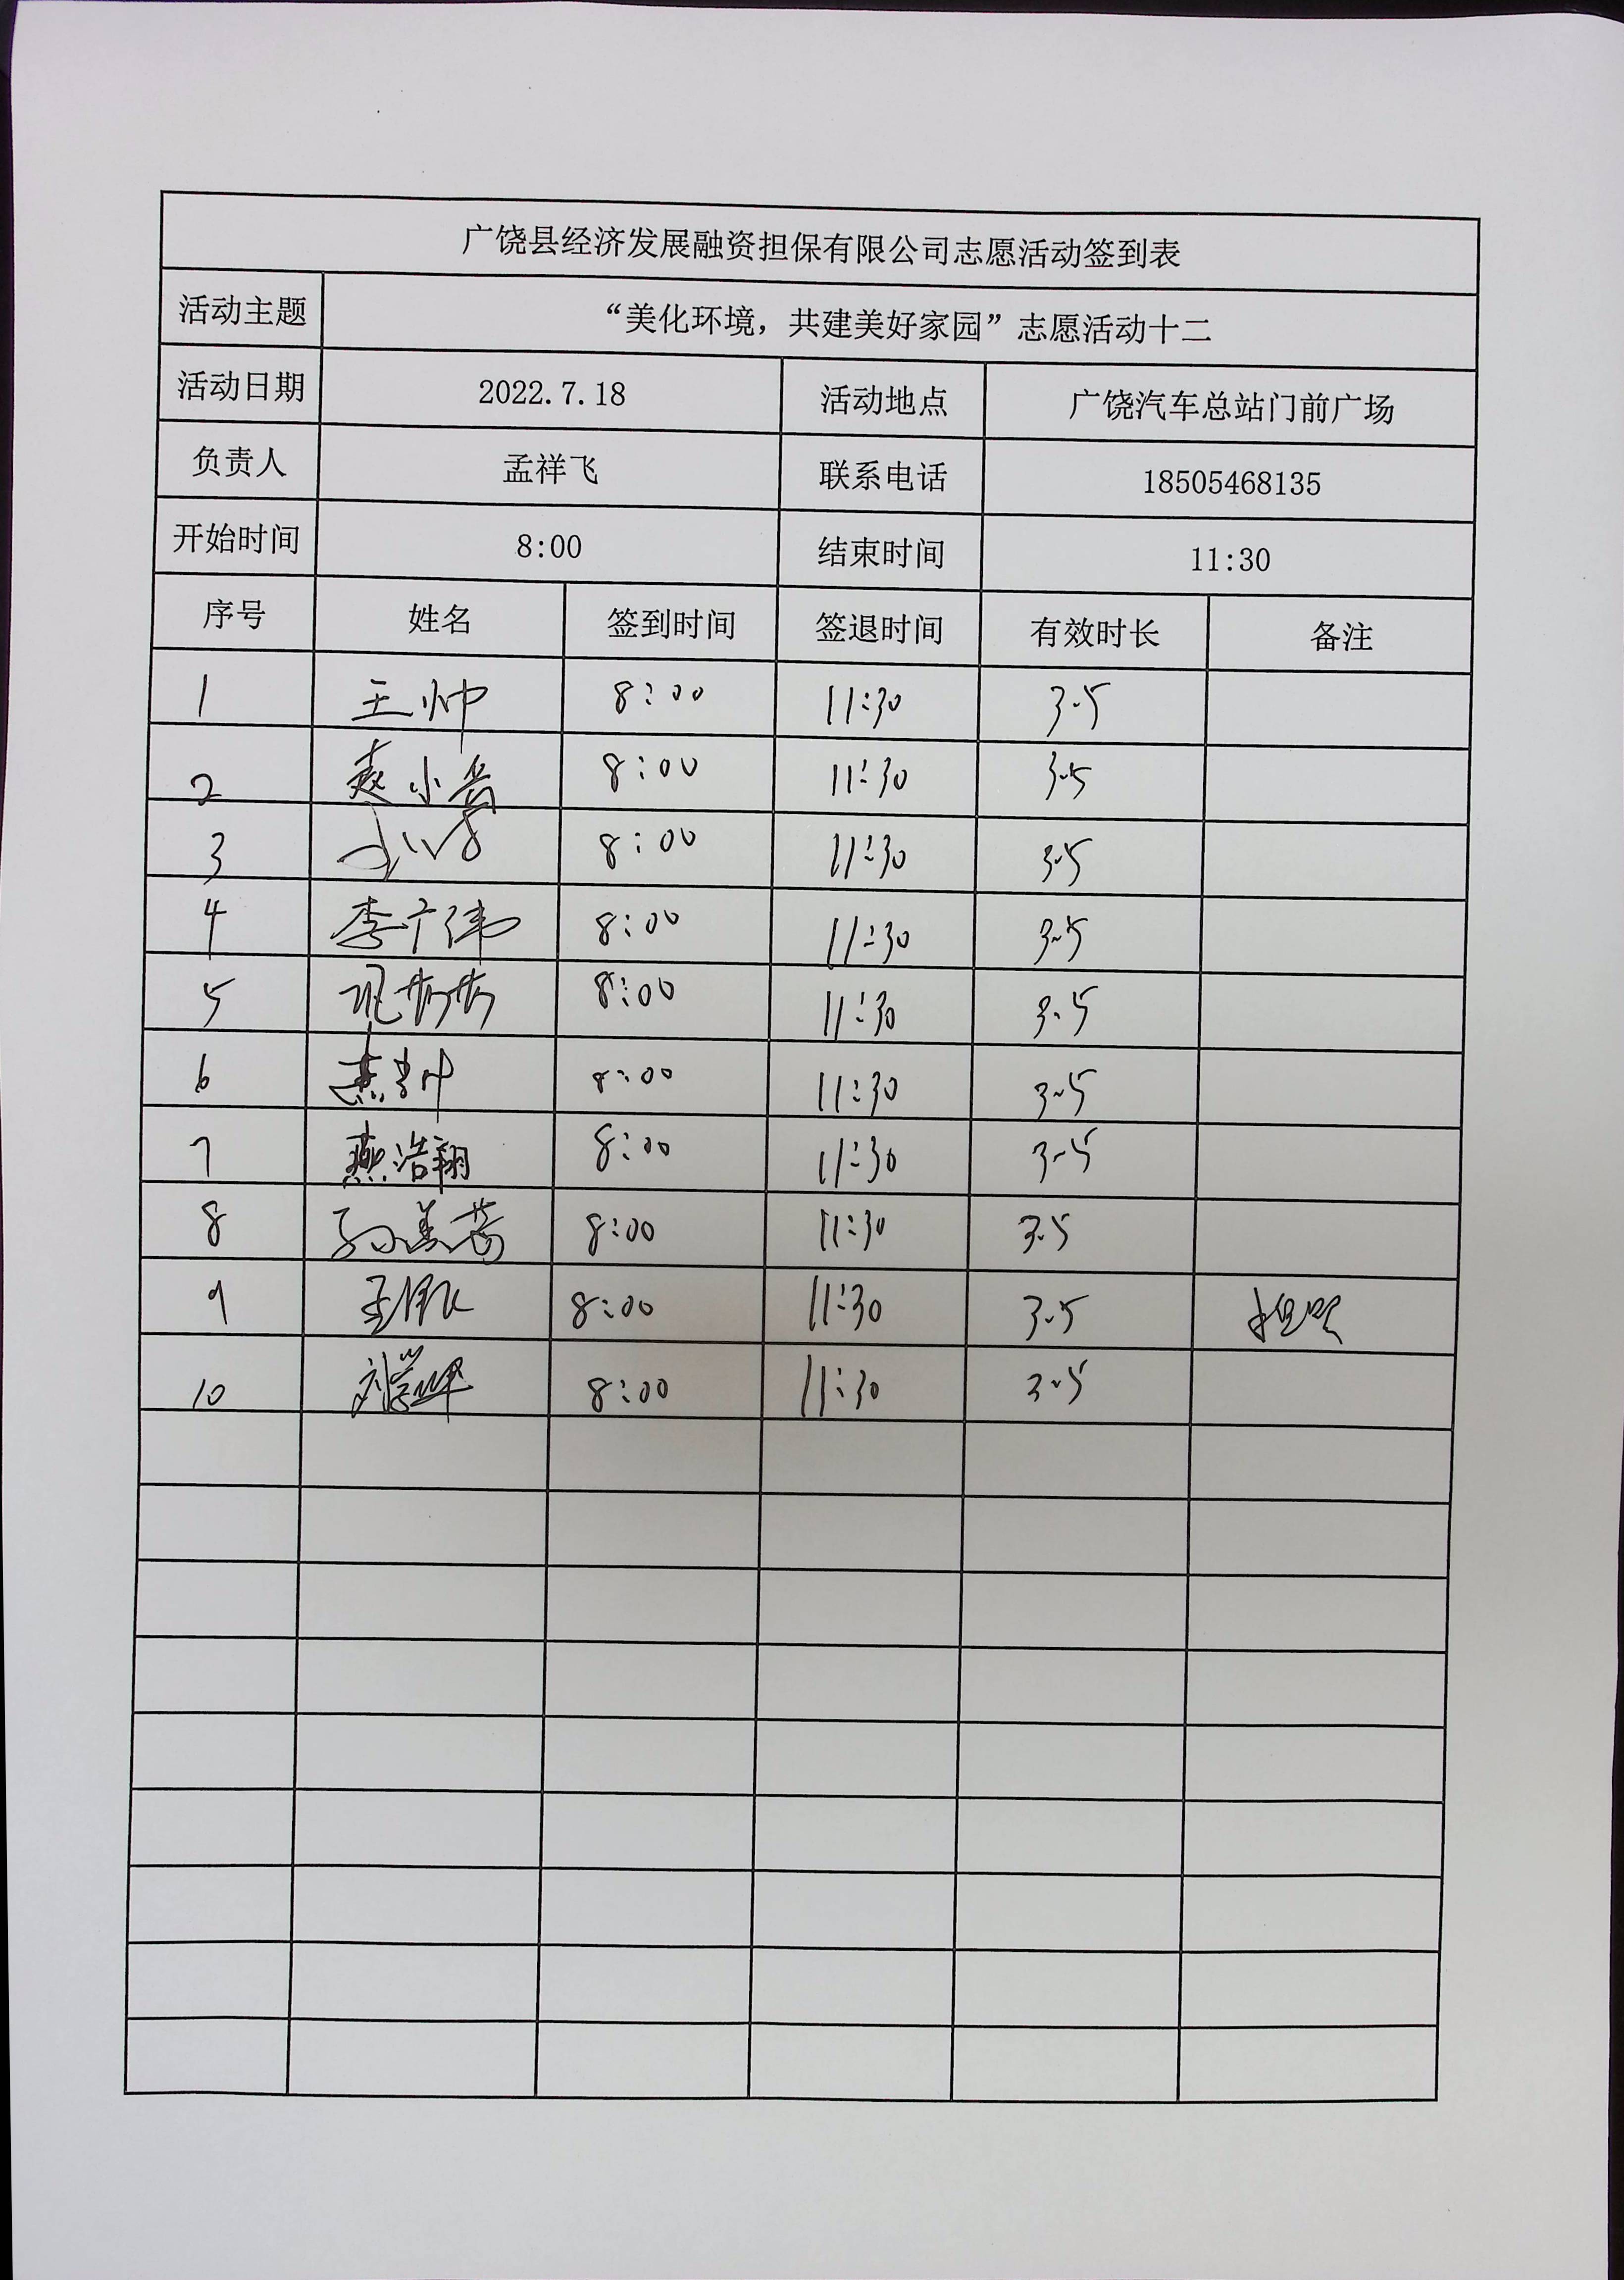 广饶县经济发展融资担保有限公司志愿活动签到表
活动主题 “美化环境，共建美好家园”志愿活动十二
活动日期 2022.7.18 活动地点 广饶汽车总站门前广场
负责人 孟祥飞 联系电话 18505468135
开始时间 8:00 结束时间 11:30
序号 姓名 签到时间 签退时间 有效时长 备注
1 王帅 8:00 11:30 3.5
2 8:00 11:30 3.5
3 8:00 11:30 3.5
4 李广伟 8:00 11:30 3.5
5 8:00 11:30 3.5
6 8:00 11:30 3.5
7 燕浩翔 8:00 11:30 3.5
8 8:00 11:30 3.5
9 8:00 11:30 3.5
10 8:00 11:30 3.5